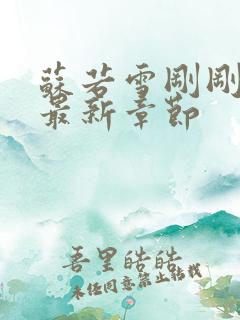 蘇若雪剛剛
最新章節
吾里皓皓
未经同意禁止转载